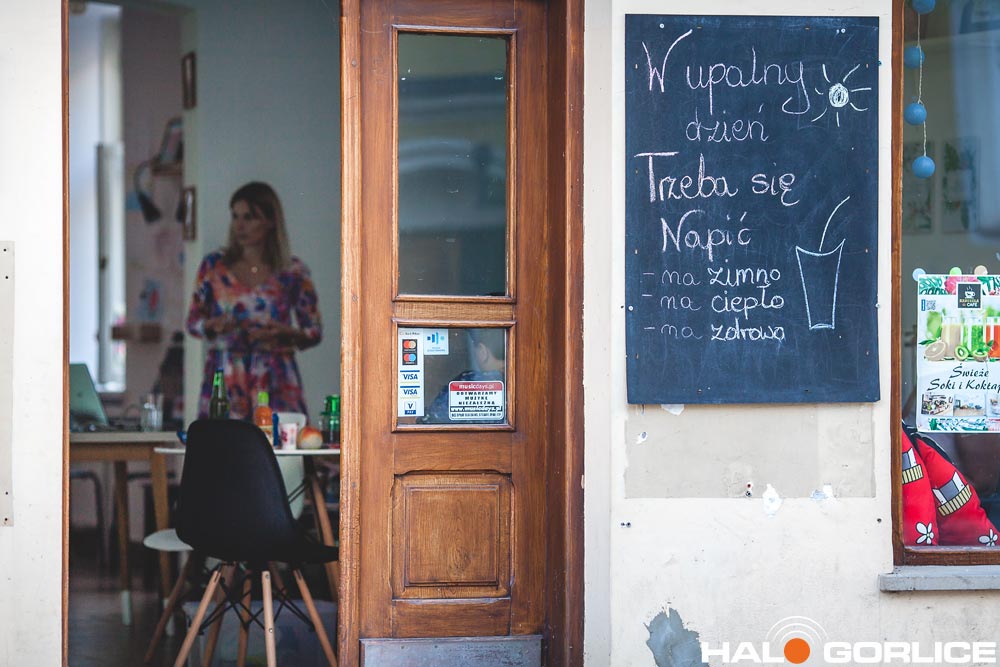 W upalny
dzień
Trzeba się
Napić
- na zimno
- na ciepło
- na zdrowo
VISA
VISA
V PAY
musicdays.pl
ODTWARZAMY
MUZYKĘ
NIEZALEŻNĄ
www.musicdays.pl
CAFE
Świeże
Soki i Koktajl
HALO GORLICE